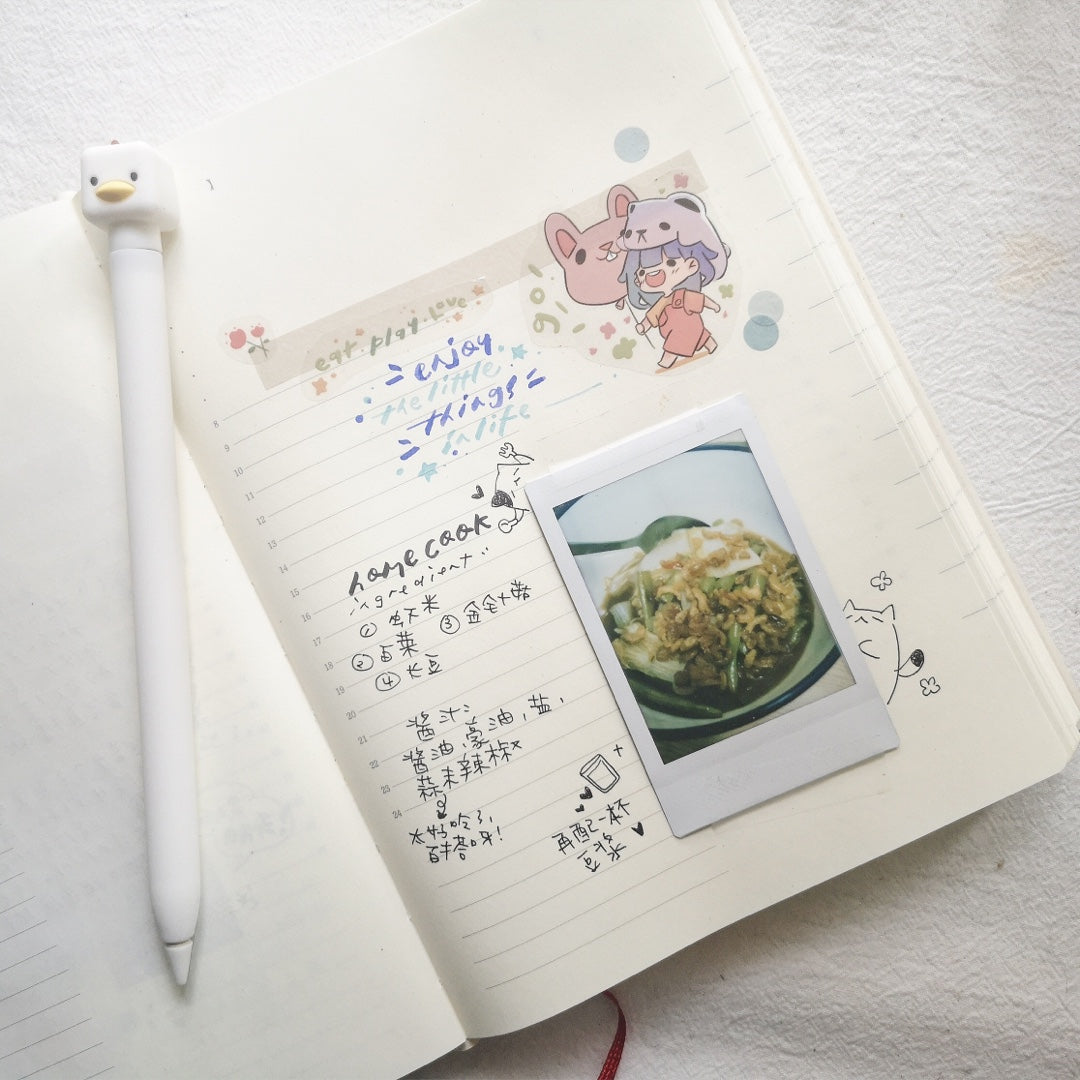 go!
eat.play.love
enjoy
the little
things
in life
8
9
10
11
12
13
14
15
16
17
18
19
20
21
22
23
24
home cook
ingredient
① 虾米 ③
② 菜
④ 长豆
酱汁:
酱油,蠔油,盐,
蒜末辣椒
太好吃了,
百搭呀!
再配一杯
豆浆